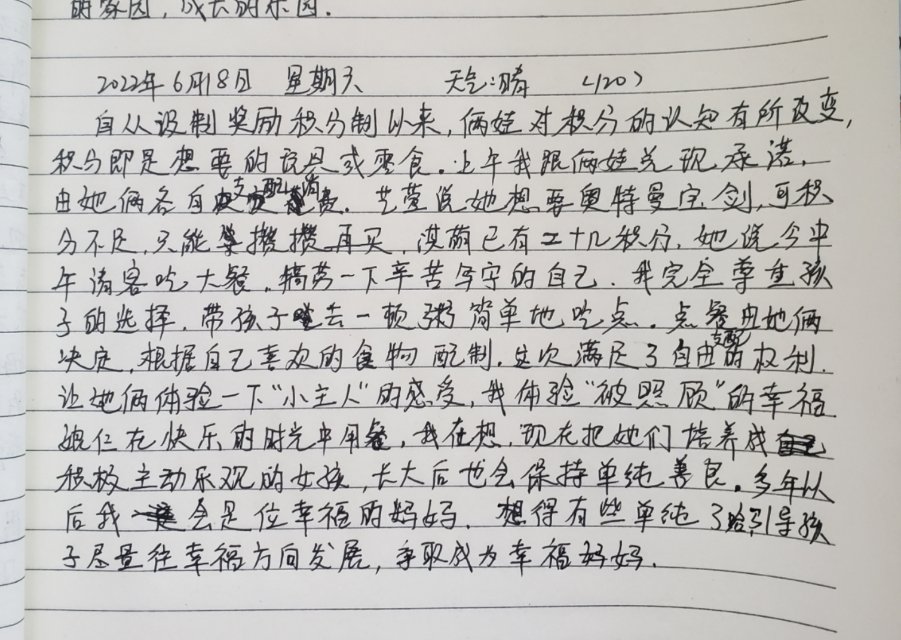 的家园，成长的乐园．
2022年6月18日 星期天 天气:晴 (120)
自从设制奖励积分制以来，俩娃对积分的认知有所改变，
积分即是想要的玩具或零食．上午我跟俩娃兑现承诺，
由她俩各自支配消费．艺萱说她想要奥特曼宝剑，可积
分不足，只能攒攒再买，淇萌已有二十几积分，她说今中
午请客吃大餐，犒劳一下辛苦写字的自己．我完全尊重孩
子的选择，带孩子去一顿粥简单地吃点．点餐由她俩
决定，根据自己喜欢的食物配制，这次满足了自由支配的权利，
让她俩体验一下“小主人”的感受，我体验“被照顾”的幸福
娘仨在快乐的时光中用餐，我在想，现在把她们培养成
积极主动乐观的女孩，长大后也会保持单纯善良．多年以
后我会是位幸福的妈妈．想得有些单纯了哈引导孩
子尽量往幸福方向发展，争取成为幸福妈妈．